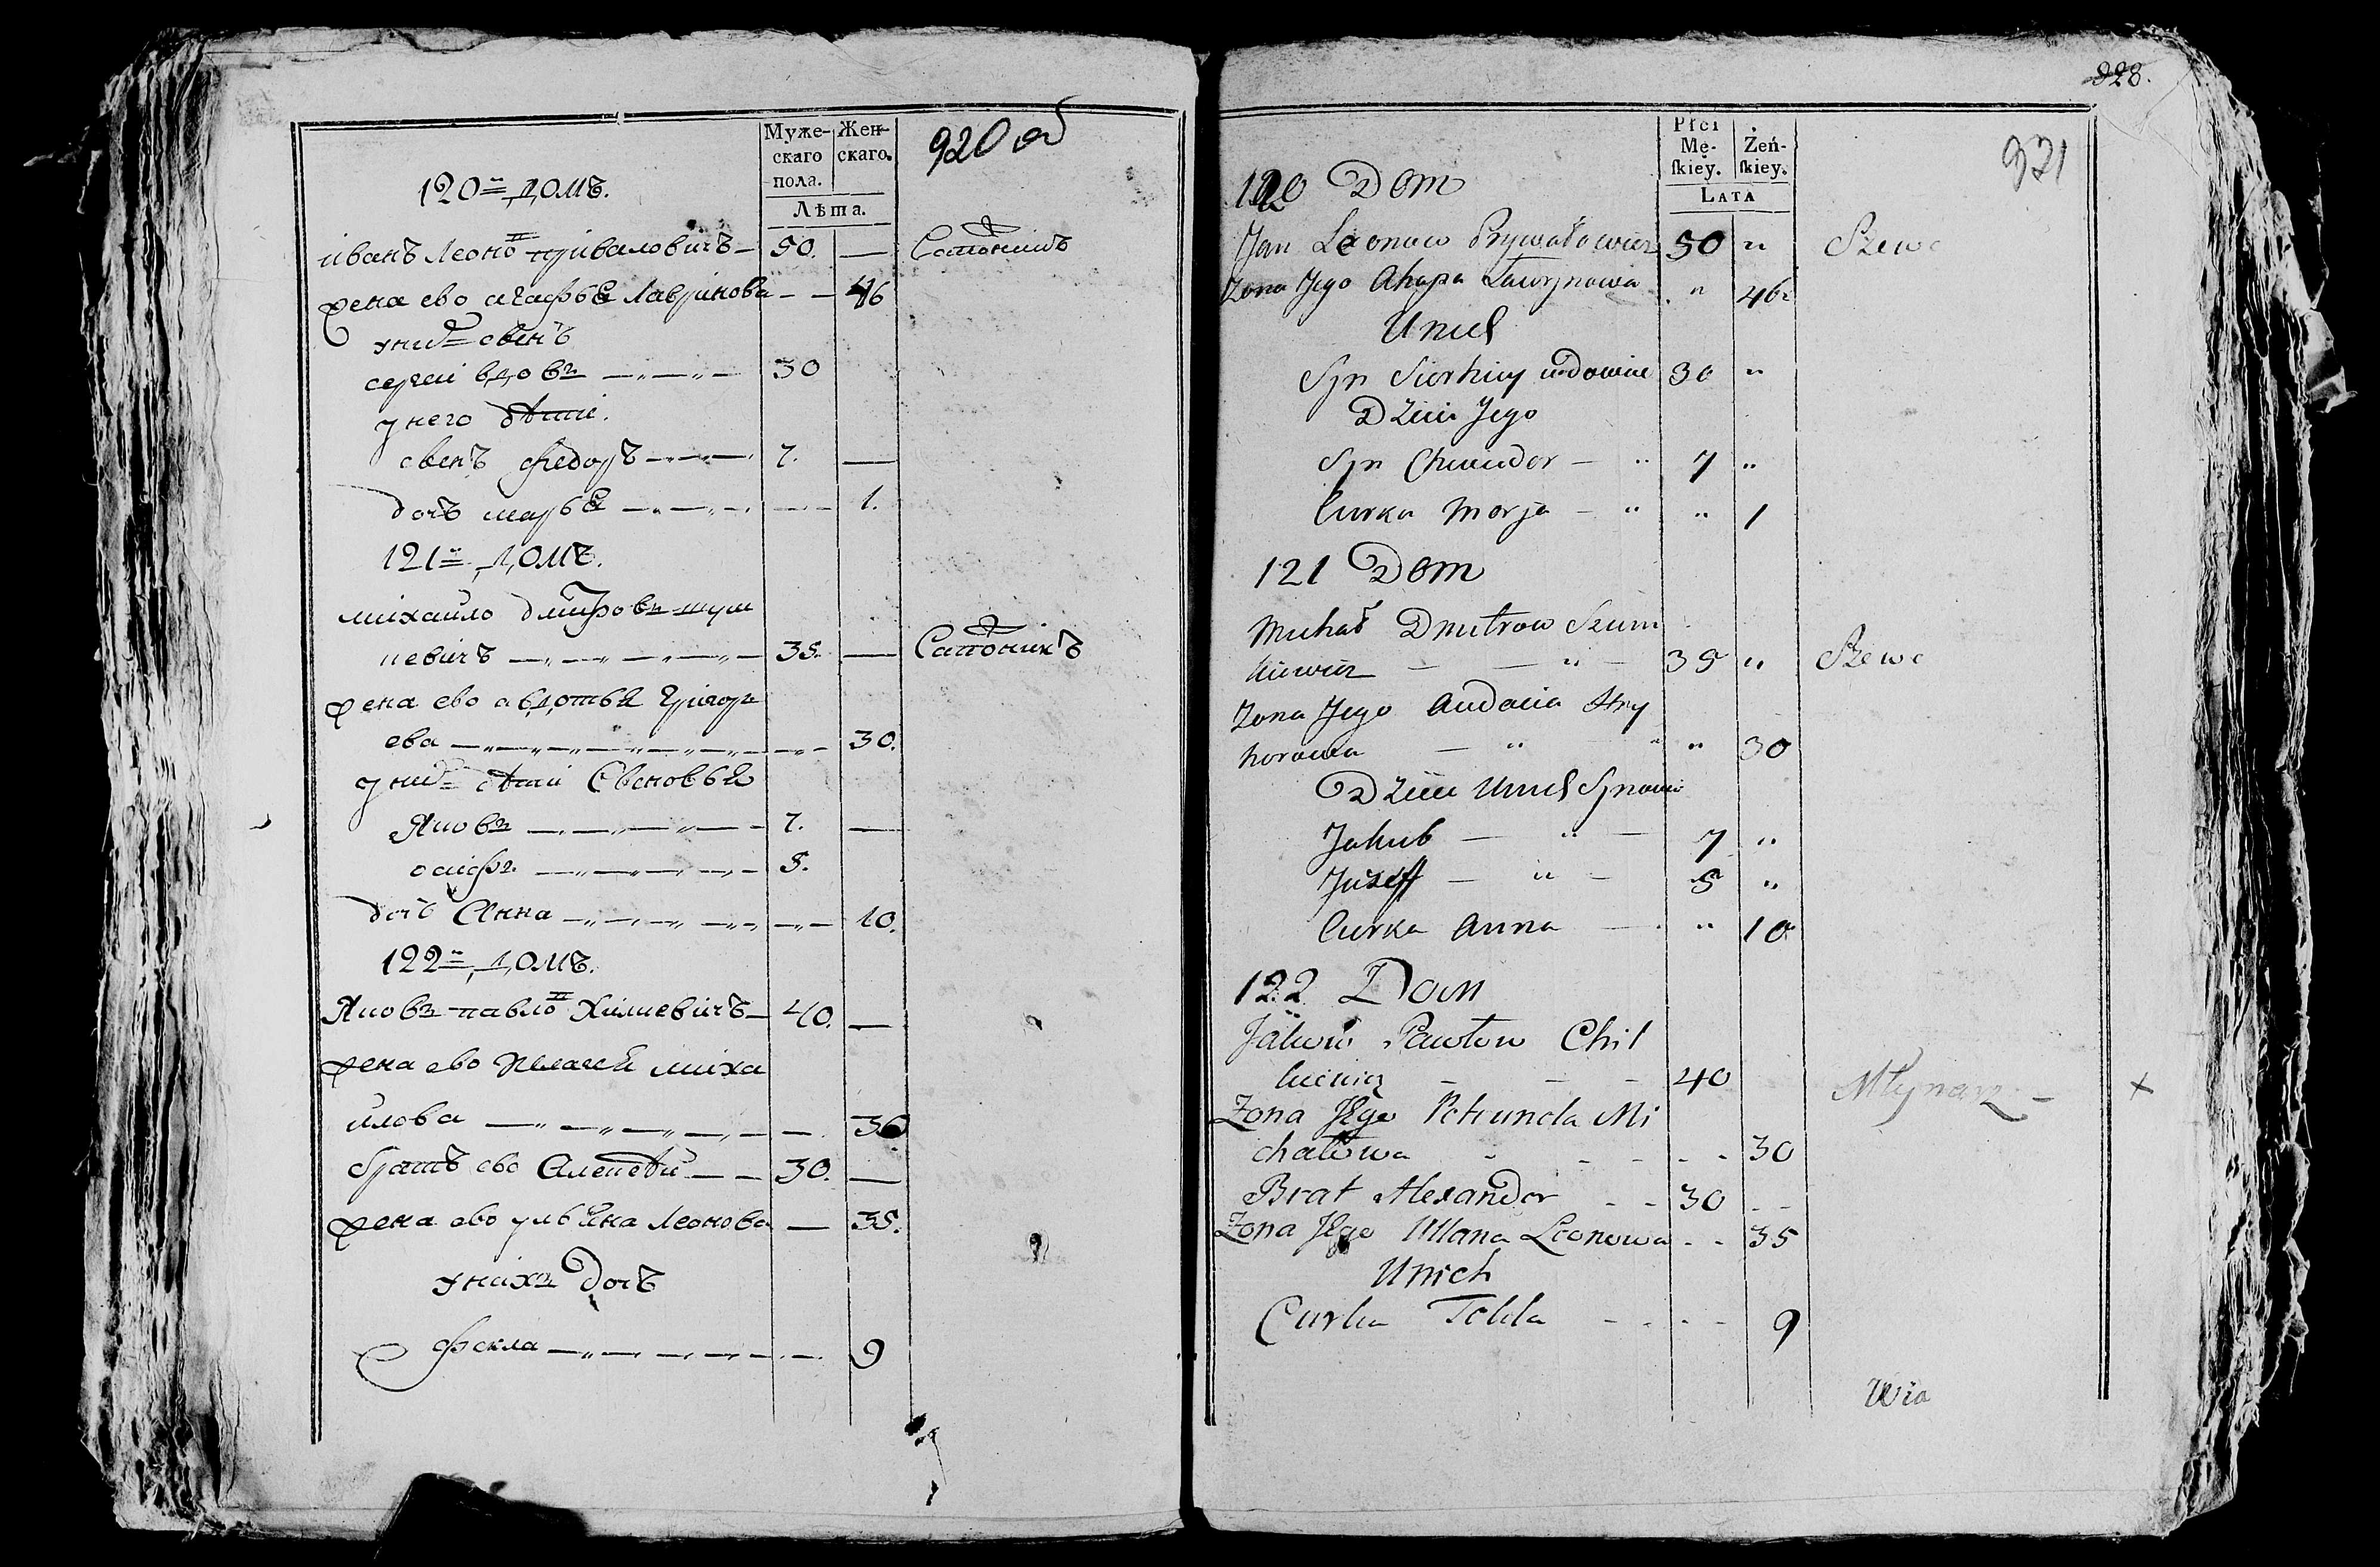 Муже- Жен-
скаго скаго.
пола.
Лѣта.
920 об
120й домъ.
иванъ Леоно҃в приваловичъ 50. — Сапожникъ
жена ево агафья Лавринова — — 46
у них сынъ
сергей вдовъ 30
у него дети.
сынъ федоръ 7. —
дочь марья 1.
121й домъ.
михайло дмитровъ шум
кевичъ 35. — Сапожникъ
жена ево авдотья Григорь
ева 30.
у них дети Сыновья
Яковъ 7. —
осифъ 5.
дочь Анна 10.
122й домъ.
Яковъ павло҃в Хилкевичъ 40. —
жена ево пелагея миха
йлова 30
братъ ево Алексей — — 30. —
жена ево ульяна Леонова — 35.
у нихъ дочь
фекла 9
928.
921
Płci
Mę- Żeń-
skiey. skiey.
LATA
120 Dom
Jan Leonow Prywałowicz 50 " Szewc
Zona Jego Ahapa Ławrynowa " 46
Unich
Syn Sierhiey wdowiec 30 "
Dzieci Jego
Syn Chwiedor — " 7 "
Curka Marja — " " 1
121 Dom
Michał Dmitrow Szum
kiewicz — — " — 35 " Szewc
Zona Jego Audocia Hry
horowa — " " " 30
Dzieci Unich Synowie
Jakub — " — 7 "
Juzeff — " — 5 "
Curka Anna — " 10
122 Dom
Jakow Pawłow Chil
kiewicz - - - 40 Młynarz -
Zona Jego Petrunela Mi
chałowa - - - - - 30
Brat Alexander - - 30 - -
Zona Jego Ullana Leonowa - - 35
Unich
Curka Tekla - - - - 9
Wia